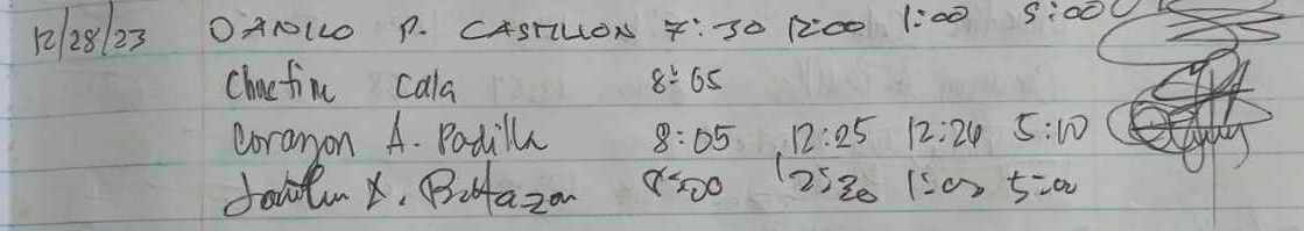 12/28/23 DANILO P. CASTILLON 7:30 12:00 1:00 5:00
Cala 8:05
Corazon A. Padilla 8:05 12:25 12:26 5:10
8:00 12:30 1:00 5:00